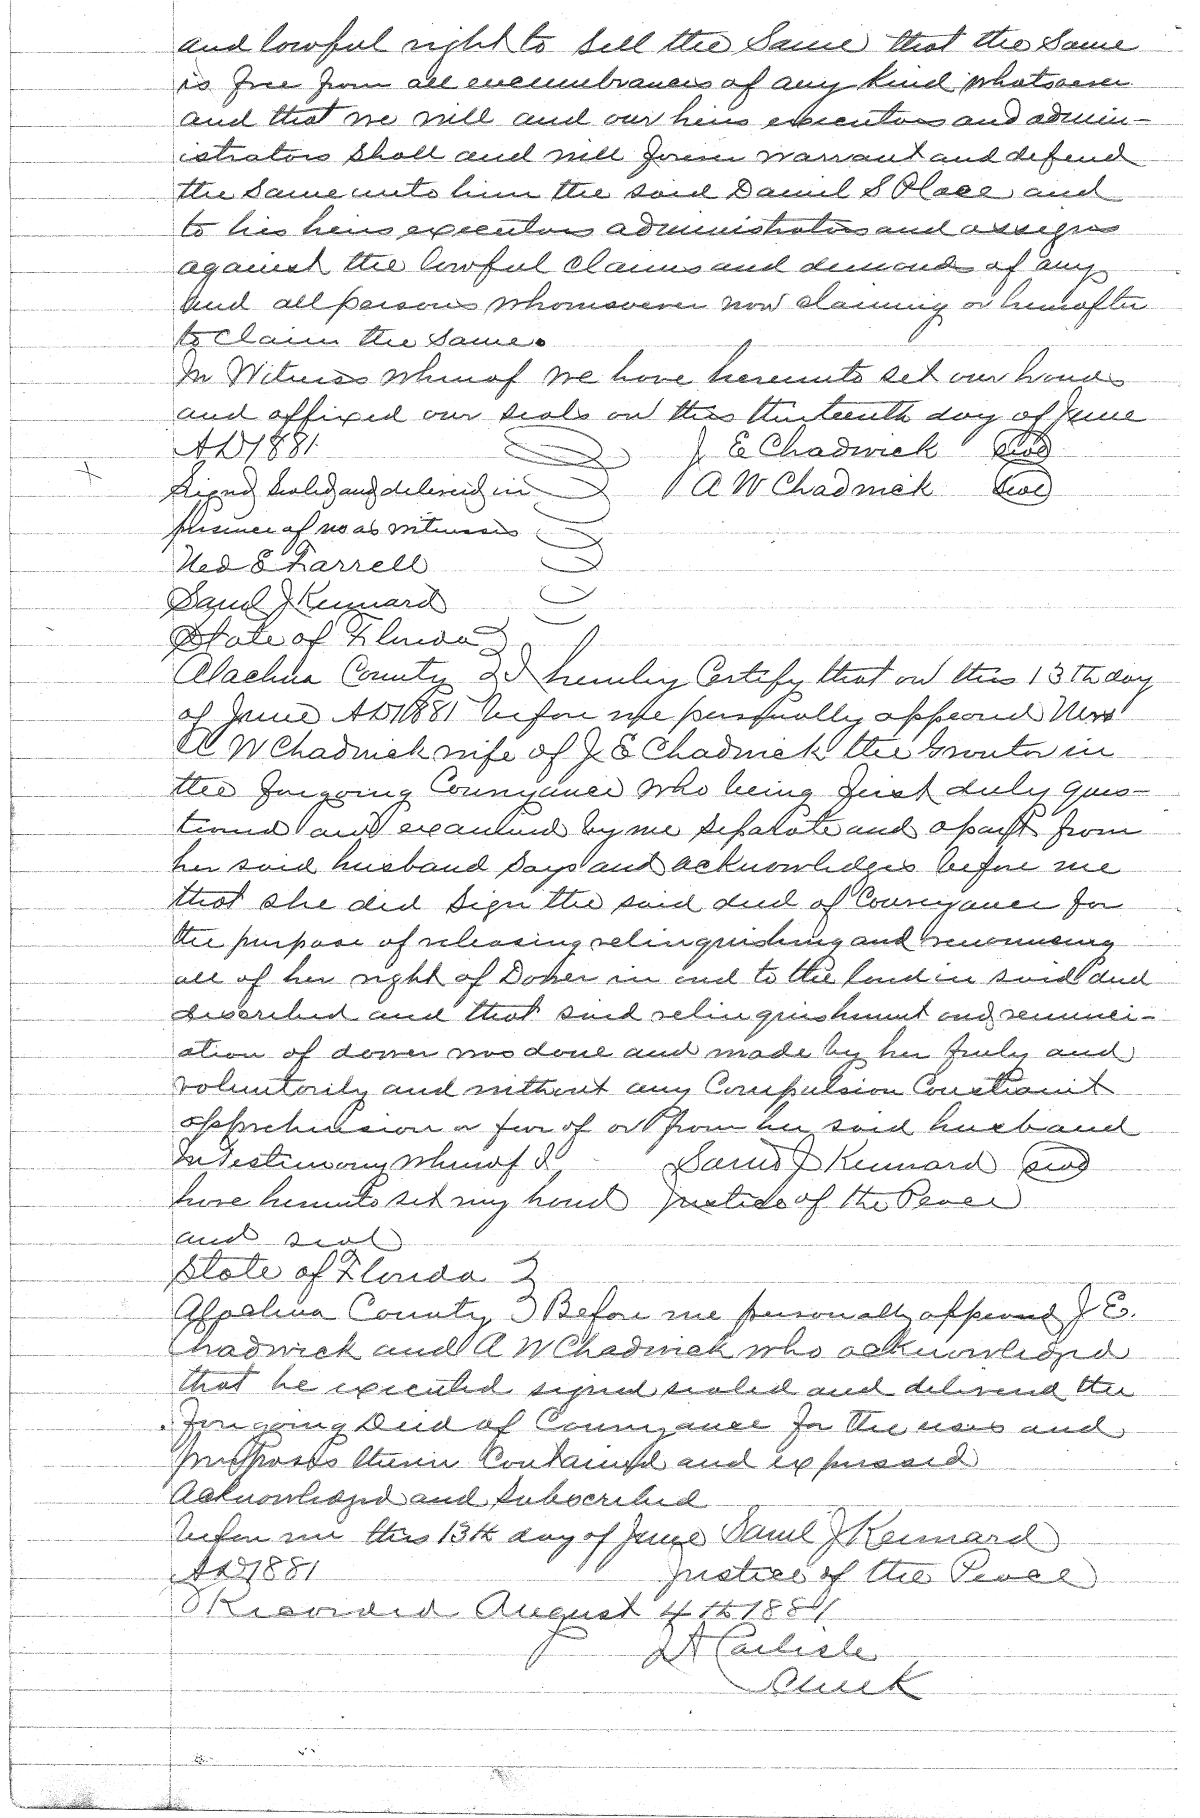 and lawful right to sell the Same that the Same
is free from all encumbrances of any kind whatsoever
and that we will and our heirs executors and admin-
istrators shall and will forever warrant and defend
the Same unto him the said Daniel S Place and
to his heirs executors administrators and assigns
against the lawful claims and demands of any
and all persons whomsoever now claiming or hereafter
to claim the same.
In Witness whereof we have hereunto set our hands
and affixed our seals on this thirteenth day of June
AD 1881 J E Chadwick seal
Signed sealed and delivered in A W Chadwick seal
presence of us as witnesses
Ned E Farrell
Saml J Kennard
State of Florida
Alachua County I hereby Certify that on this 13th day
of June AD 1881 before me personally appeared Mrs
A W Chadwick wife of J E Chadwick the Grantor in
the foregoing Conveyance who being first duly ques-
tioned and examined by me separate and apart from
her said husband says and acknowledges before me
that she did Sign the said deed of Conveyance for
the purpose of releasing relinquishing and renouncing
all of her right of Dower in and to the land in said deed
described and that said relinquishment and renunci-
ation of dower was done and made by her freely and
voluntarily and without any Compulsion Constraint
apprehension or fear of or from her said husband
In Testimony whereof I Saml J Kennard seal
have hereunto set my hand Justice of the Peace
and seal
State of Florida
Alachua County Before me personally appeared J E.
Chadwick and A W Chadwick who acknowledged
that he executed signed sealed and delivered the
foregoing Deed of Conveyance for the uses and
purposes therein Contained and expressed
Acknowledged and Subscribed
before me this 13th day of June Saml J Kennard
AD 1881 Justice of the Peace
Recorded August 4th 1881
J A Carlisle
Clerk